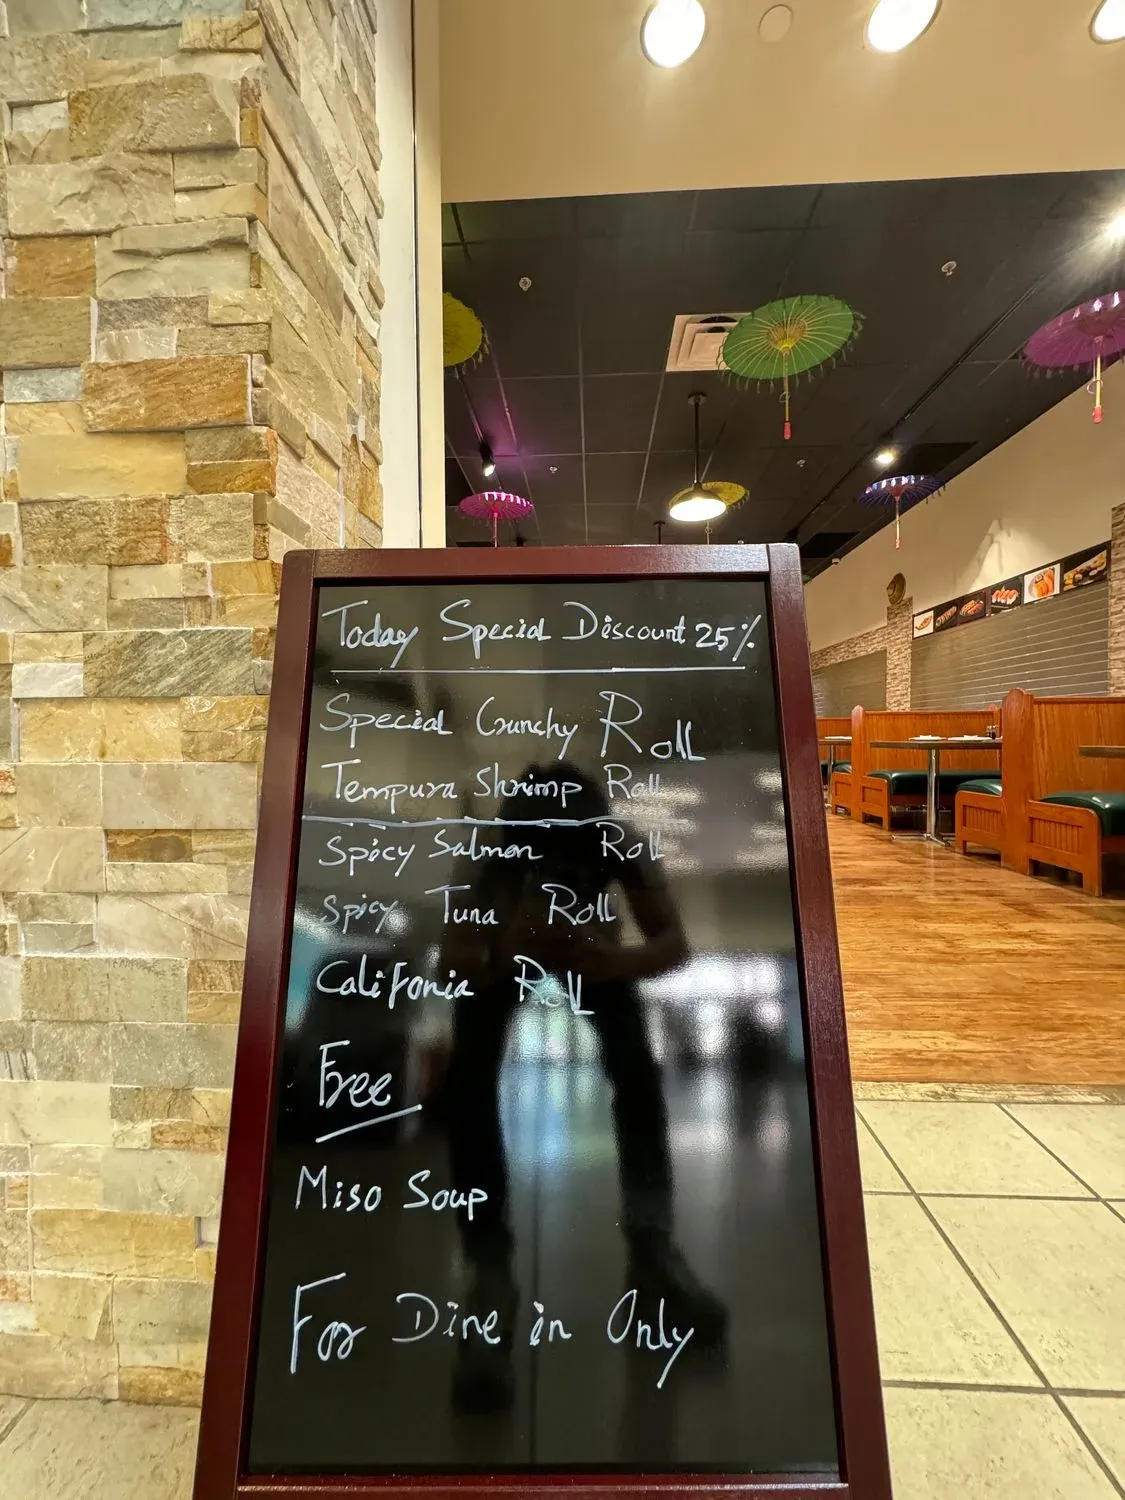 Today Special Discount 25%
Special Crunchy Roll
Tempura Shrimp Roll
Spicy Salmon Roll
Spicy Tuna Roll
Califonia Roll
Free
Miso Soup
For Dine in Only